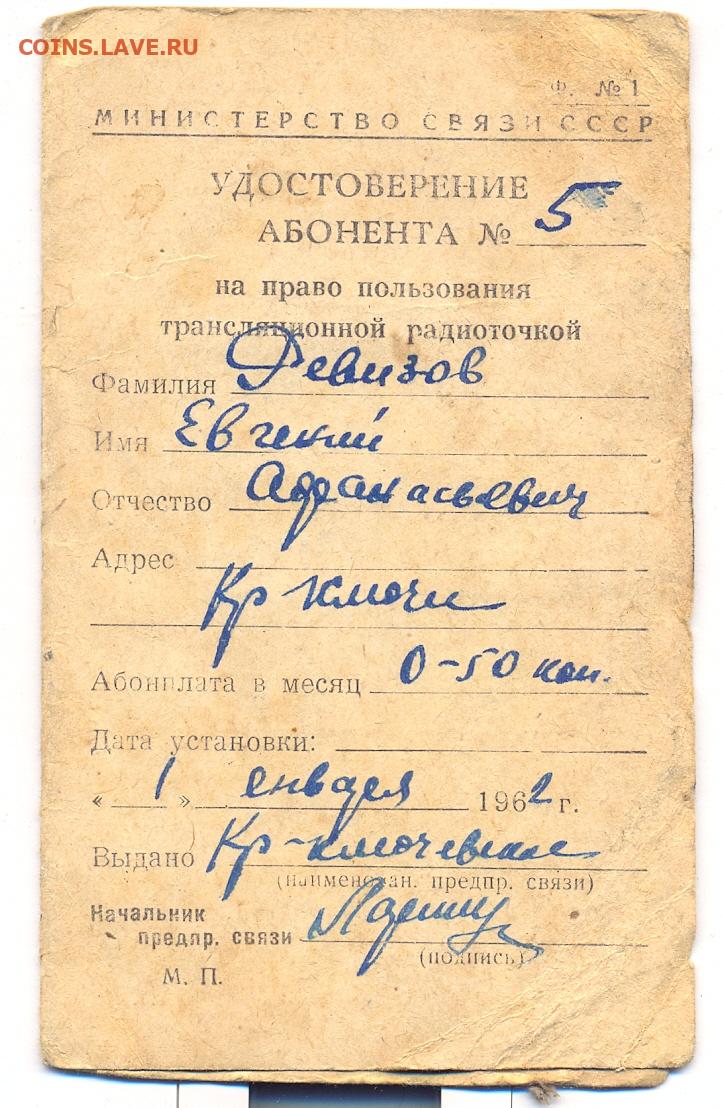 COINS.LAVE.RU
Ф. №1
МИНИСТЕРСТВО СВЯЗИ СССР
УДОСТОВЕРЕНИЕ
АБОНЕНТА № 5
на право пользования
трансляционной радиоточкой
Фамилия Ревизов
Имя Евгений
Отчество Афанасьевич
Адрес
Кр Ключи
Абонплата в месяц 0-50 коп.
Дата установки:
« 1 » енваря 1962 г.
Выдано Кр-ключевское
(наименован. предпр. связи)
Начальник
предпр. связи
(подпись)
М. П.